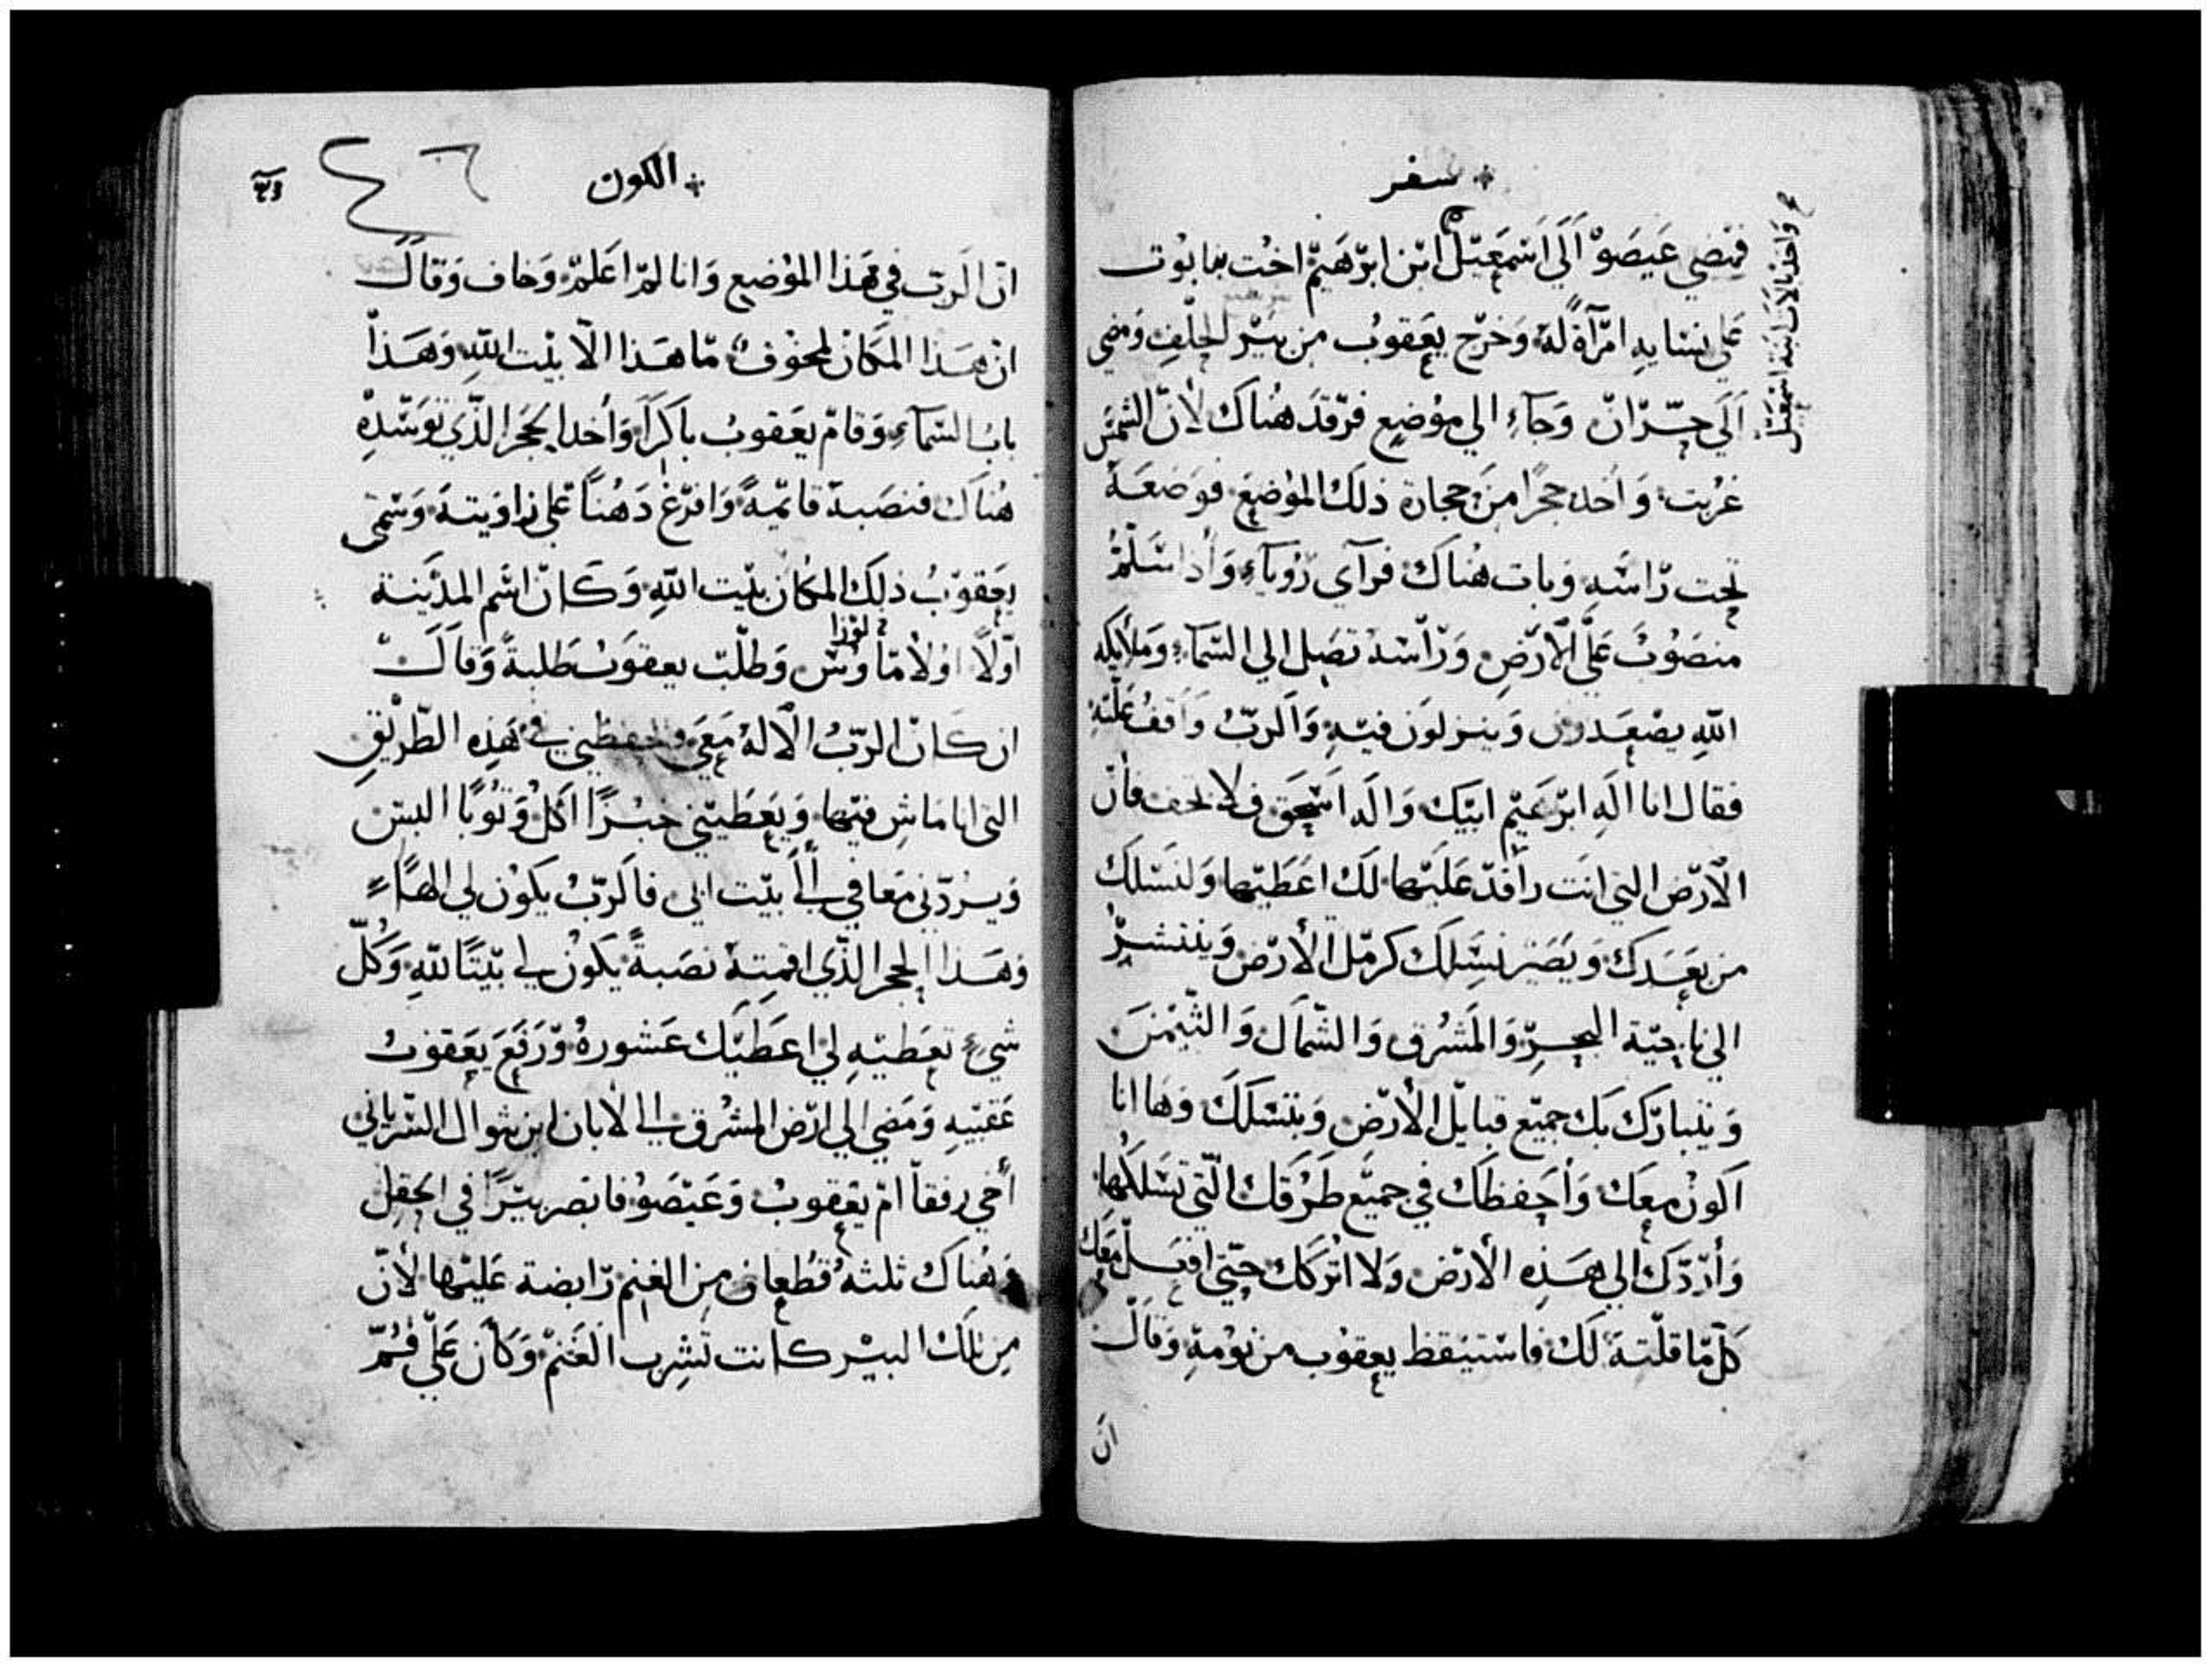 سفر
فمضي عيصو الي اسمعيل ابن ابرهيم اخت نبايوت
علي نسايه امرآة له وخرج يعقوب من بير الحلف ومضي
الي حران وجاء الي موضع فرقد هناك لان الشمس
غربت واخد حجرا من حجارة ذلك الموضع فوضعه
تحت راسه وبات هناك فرآي روياء واذا سلم
منصوب علي الارض وراسه تصل الي السماء وملايكه
الله يصعدون وينزلون فيه والرب واقف عليه
فقال انا اله ابرهيم ابيك واله اسحق فلا تخف فان
الارض التي انت راقد عليها لك اعطيها ولنسلك
من بعدك ويصير نسلك كرمل الارض وينتشر
الي ناحية البحر والمشرق والشمال والتيمن
ويتبارك بك جميع قبايل الارض وبنسلك وها انا
اكون معك واحفظك في جميع طرقك التي تسلكها
وأردك الي هذه الارض ولا اتركك حتي افعل معك
كل ما قلته لك فاستيقظ يعقوب من نومه وقال
ان
واخد بالات ابنة اسمعيل
الكون
٤٦
ان الرب في هذا الموضع وانا لم اعلم وخاف وقال
ان هذا المكان لمخوف ما هذا الا بيت الله وهذا
باب السماء وقام يعقوب باكرا وأخد الحجر الذي توسده
هناك فنصبه قايمة وافرغ دهنا علي زاويته وسمي
يعقوب ذلك المكان بيت الله وكان اسم المدينة
لوزا
اولا اولاماوس وطلب يعقوب طلبة وقال
ان كان الرب الاله معي وحفظني في هذه الطريق
التي انا ماش فيها ويعطيني خبزا اكل وثوبا البس
ويردني معافي الي بيت ابي فالرب يكون لي الهاء
وهذا الحجر الذي اقمته نصبة يكون لي بيتا لله وكل
شيء تعطيه لي اعطيك عشوره ورفع يعقوب
عقبيه ومضي الي ارض المشرق الي لابان ابن بتوال السرياني
أخي رفقا ام يعقوب وعيصو فابصر بيرا في الحقل
وهناك ثلثة قطعان من الغنم رابضة عليها لان
من تلك البير كانت تشرب الغنم وكان علي فم